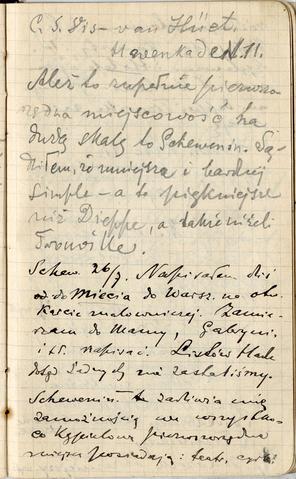 C. S. Vis - van Hüet.
Havenkade N. 11.
Ależ to zupełnie pierwszo-
rzędna miejscowość na
dużą skalę to Scheweni. Są-
dziłem, że mniejsza i bardziej
simple - a to piękniejsze
niż Dieppe, a także niżeli
Trouville.
Schew. 26/7. Napisałem dziś
do Miecia do Warsz. na
karcie malowniczej. Zamie-
rzam do Mamy, Gabryni
i napisać. Listów
żadnych nie zastaliśmy.
Schewenin. to zadziwia mię
zamożnością we wszystko -
co kąpielowe pierwszorzędne
miejsca posiadają: teatr, cyrk,